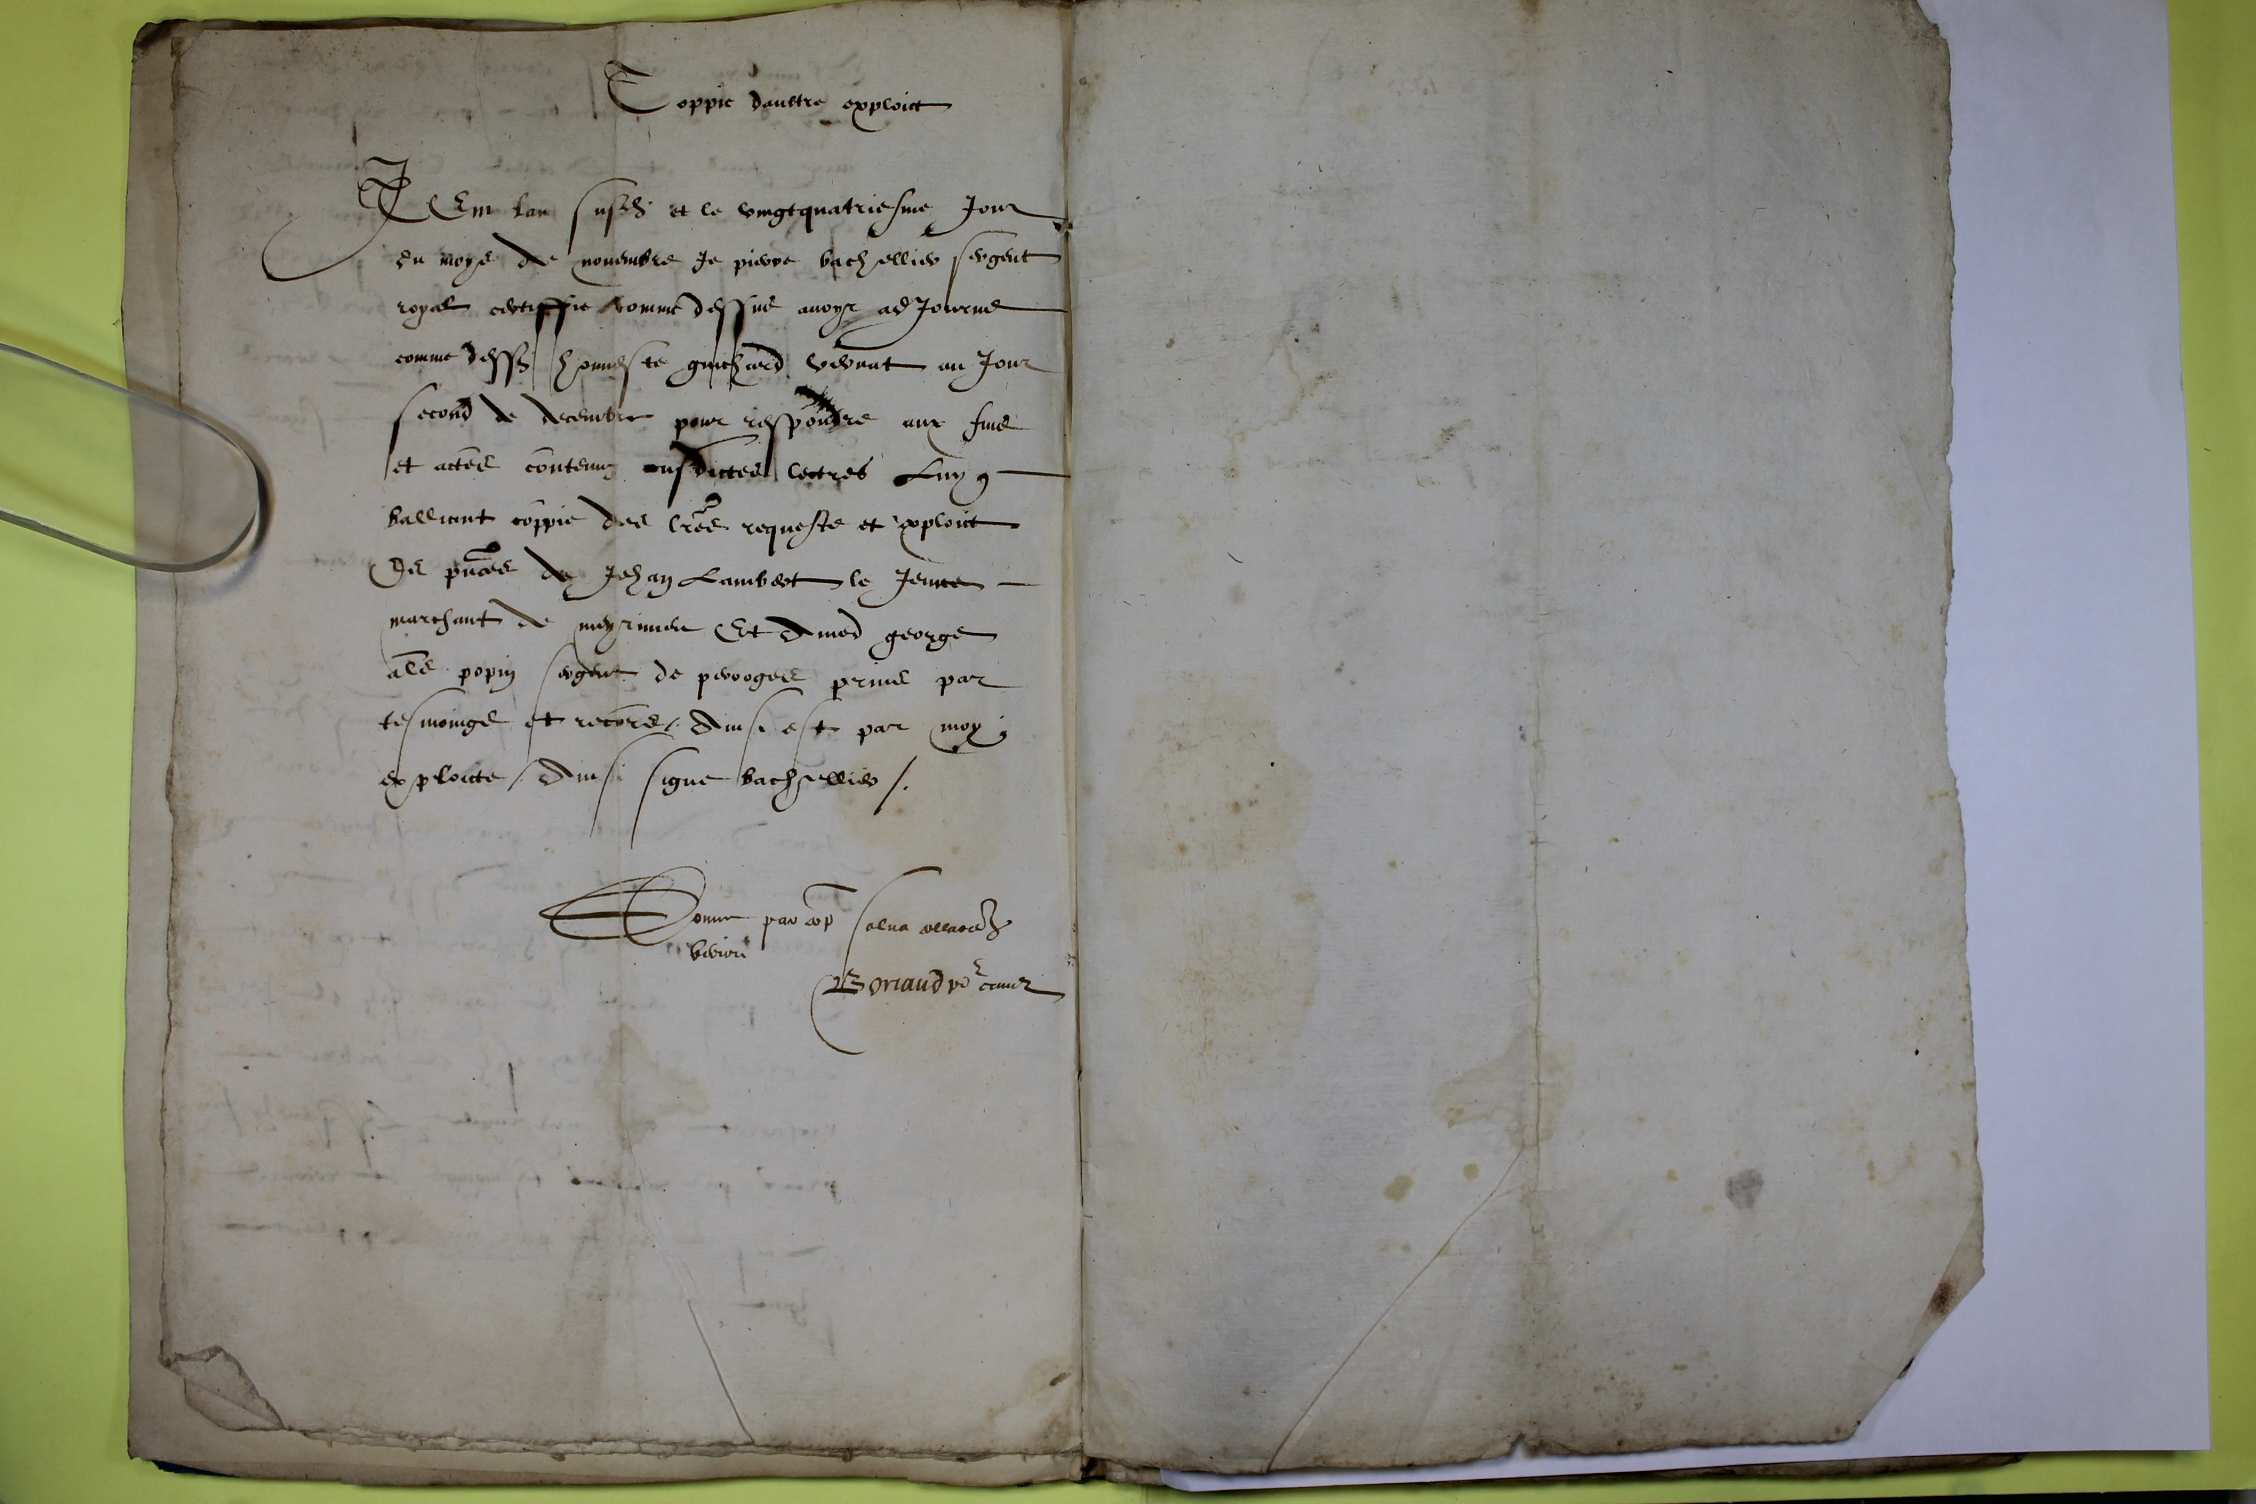 Coppie daultre exploict
Item lan susd et le vingtquatriesme Jour
du moys de novembre Je pierre bachellier sergent
royal certiffie comme dessus avoyr adJourne
comme dess honneste guichard vevnat au Jour
second de decembre pour respondre aux fins
et actes contenuz ausdictes lectres Luy
balliant coppie des lres requeste et exploict
Es pnces de Jehan Lambert le Jeune
marchant de meyrimieu Et Amed george
als popin sergent de peroges prins par
tesmoings et recors / Ainsi est par moy
exploicte / Ainsi signe bachellier /.
Donne par cop salva
Boriaud